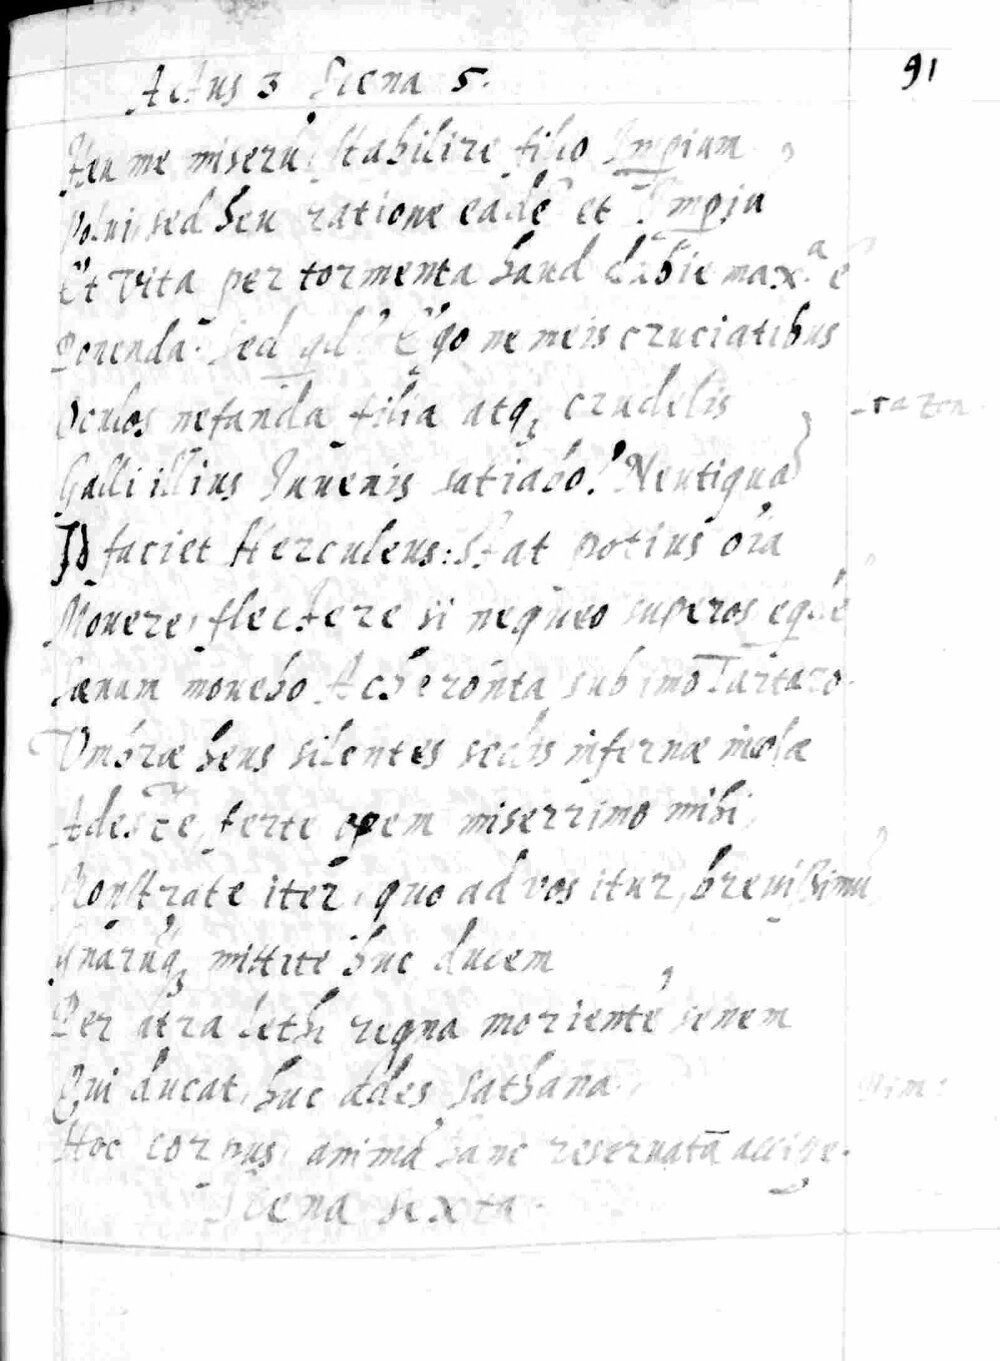 Actus 3 Scena 5. 91
Heu me miserū stabilire filio Impium
Potui, sed heu ratione eadē et Impiū
Et vita per tormenta haud dubie maxᵃ ē
Ponenda. Sed qd? Ego ne meis cruciatibus
Oculos nefanda filia atq; crudelis
Galli illius Iuuenis satiabo? Neutiquā
Id faciet Herculeus: Stat potius oīa
Mouere, flectere si nequeo superos eqdē
Sænum mouebo Acheronta sub imo Tartaro.
Vmbræ heus silentes sedis infernæ incolæ
Adeste, ferte opem miserrimo mihi,
Monstrate iter, quo ad vos itur, breuissimū
Gnarūq; mittite huc ducem
Per atra lethi regna morientē senem
Qui ducat, huc ades sathana.
Hoc corpus, animā hanc reseruatā accipe.
Scena sexta.